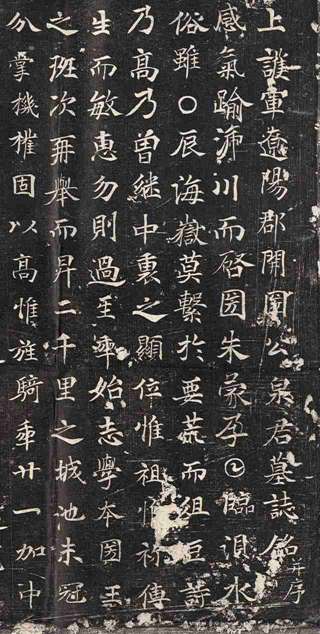 上護軍遼陽郡開圀公泉君墓誌銘并序
感氣踰㴲川而啓圀朱蒙孕𡆠臨浿水
俗雖〇辰海嶽莫繫於要荒而俎豆詩
乃高乃曾繼中裏之顯位惟祖惟祢傳
生而敏惠勿則過𤯔𠡦始志學本圀王
之班次再舉而昇二千里之城池未冠
分掌機權固以高惟旌騎𠡦廿一加中